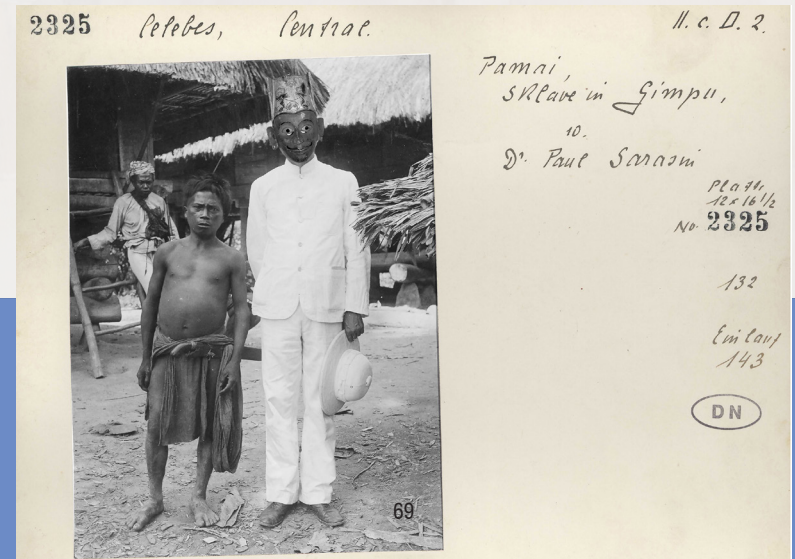 2325 Celebes, Central.
II. c. D. 2.
Pamai,
Sklave in Gimpu,
10.
Dr. Paul Sarasin
Platte
12 x 16 1/2
No. 2325
132
Einlauf
143
DN
69